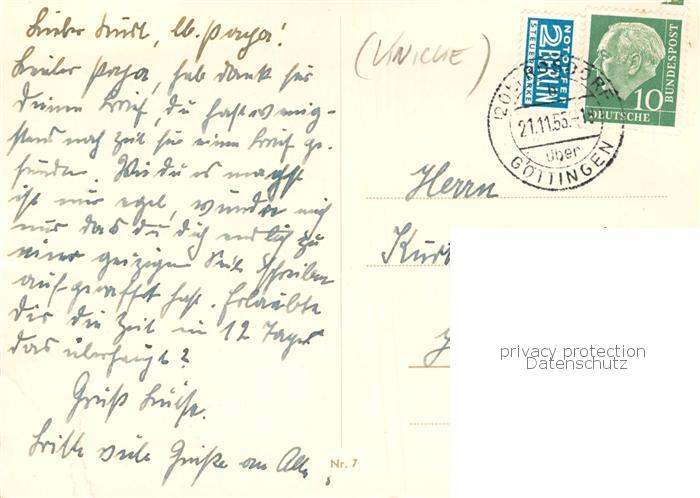 Lieber Kurt, lb. Papa!
Lieber Papa, hab Dank für
deinen Brief, du hast wenig-
stens noch Zeit für einen Brief ge-
funden. Wie du es machst
ist mir egal, wundre mich
nur das du dich endlich zu
einer geizigen Seite Schreiben
aufgerafft hast. Erlaubte
dir die Zeit in 12 Tagen
das überhaupt?
Gruß
Bitte viele Grüße an Alle,
Nr. 7
(KNICKE)
NOTOPFER
2 BERLIN
STEUERMARKE
10
DEUTSCHE
BUNDESPOST
21.11.55.-1
über
GÖTTINGEN
Herrn
Kurt
privacy protection
Datenschutz